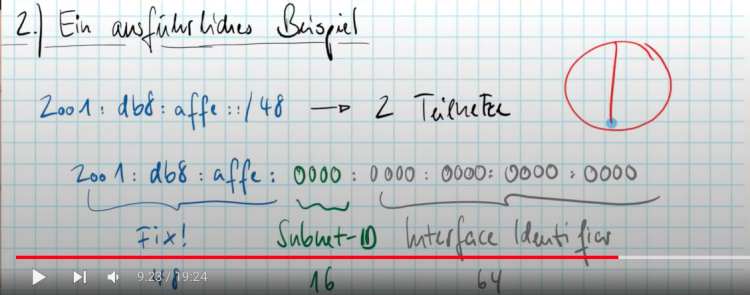 2.) Ein ausführliches Beispiel
2001:db8:affe::/48 → 2 Teilnetze
2001:db8:affe:0000:0000:0000:0000:0000
Fix! Subnet-ID Interface Identifier
48 16 64
9:23 / 19:24